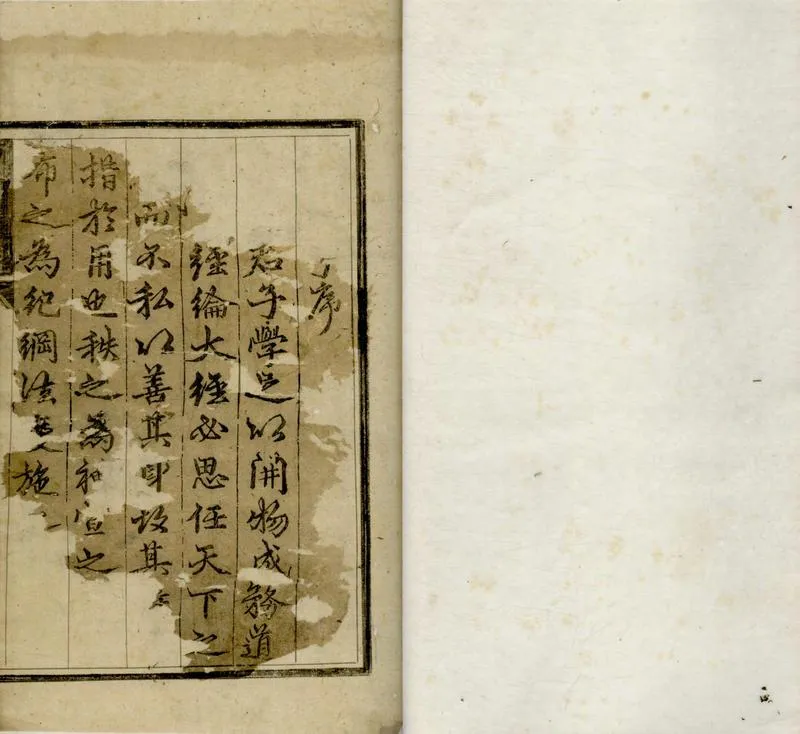 序
君子學足以開物成務道
經綸大經必思任天下之
而不私以善其身故其
措於用也秩之為和宣之
布之為紀綱法施